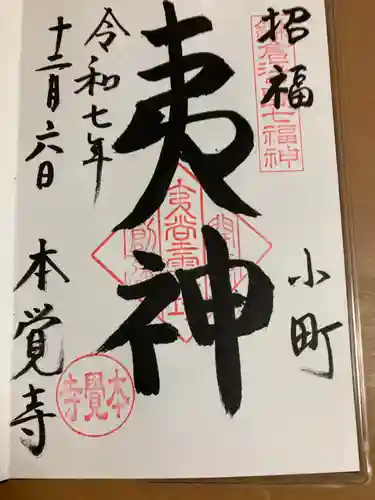 招福
鎌倉江の島七福神
夷神
小町
令和七年
十二月六日
本覚寺
本覺寺